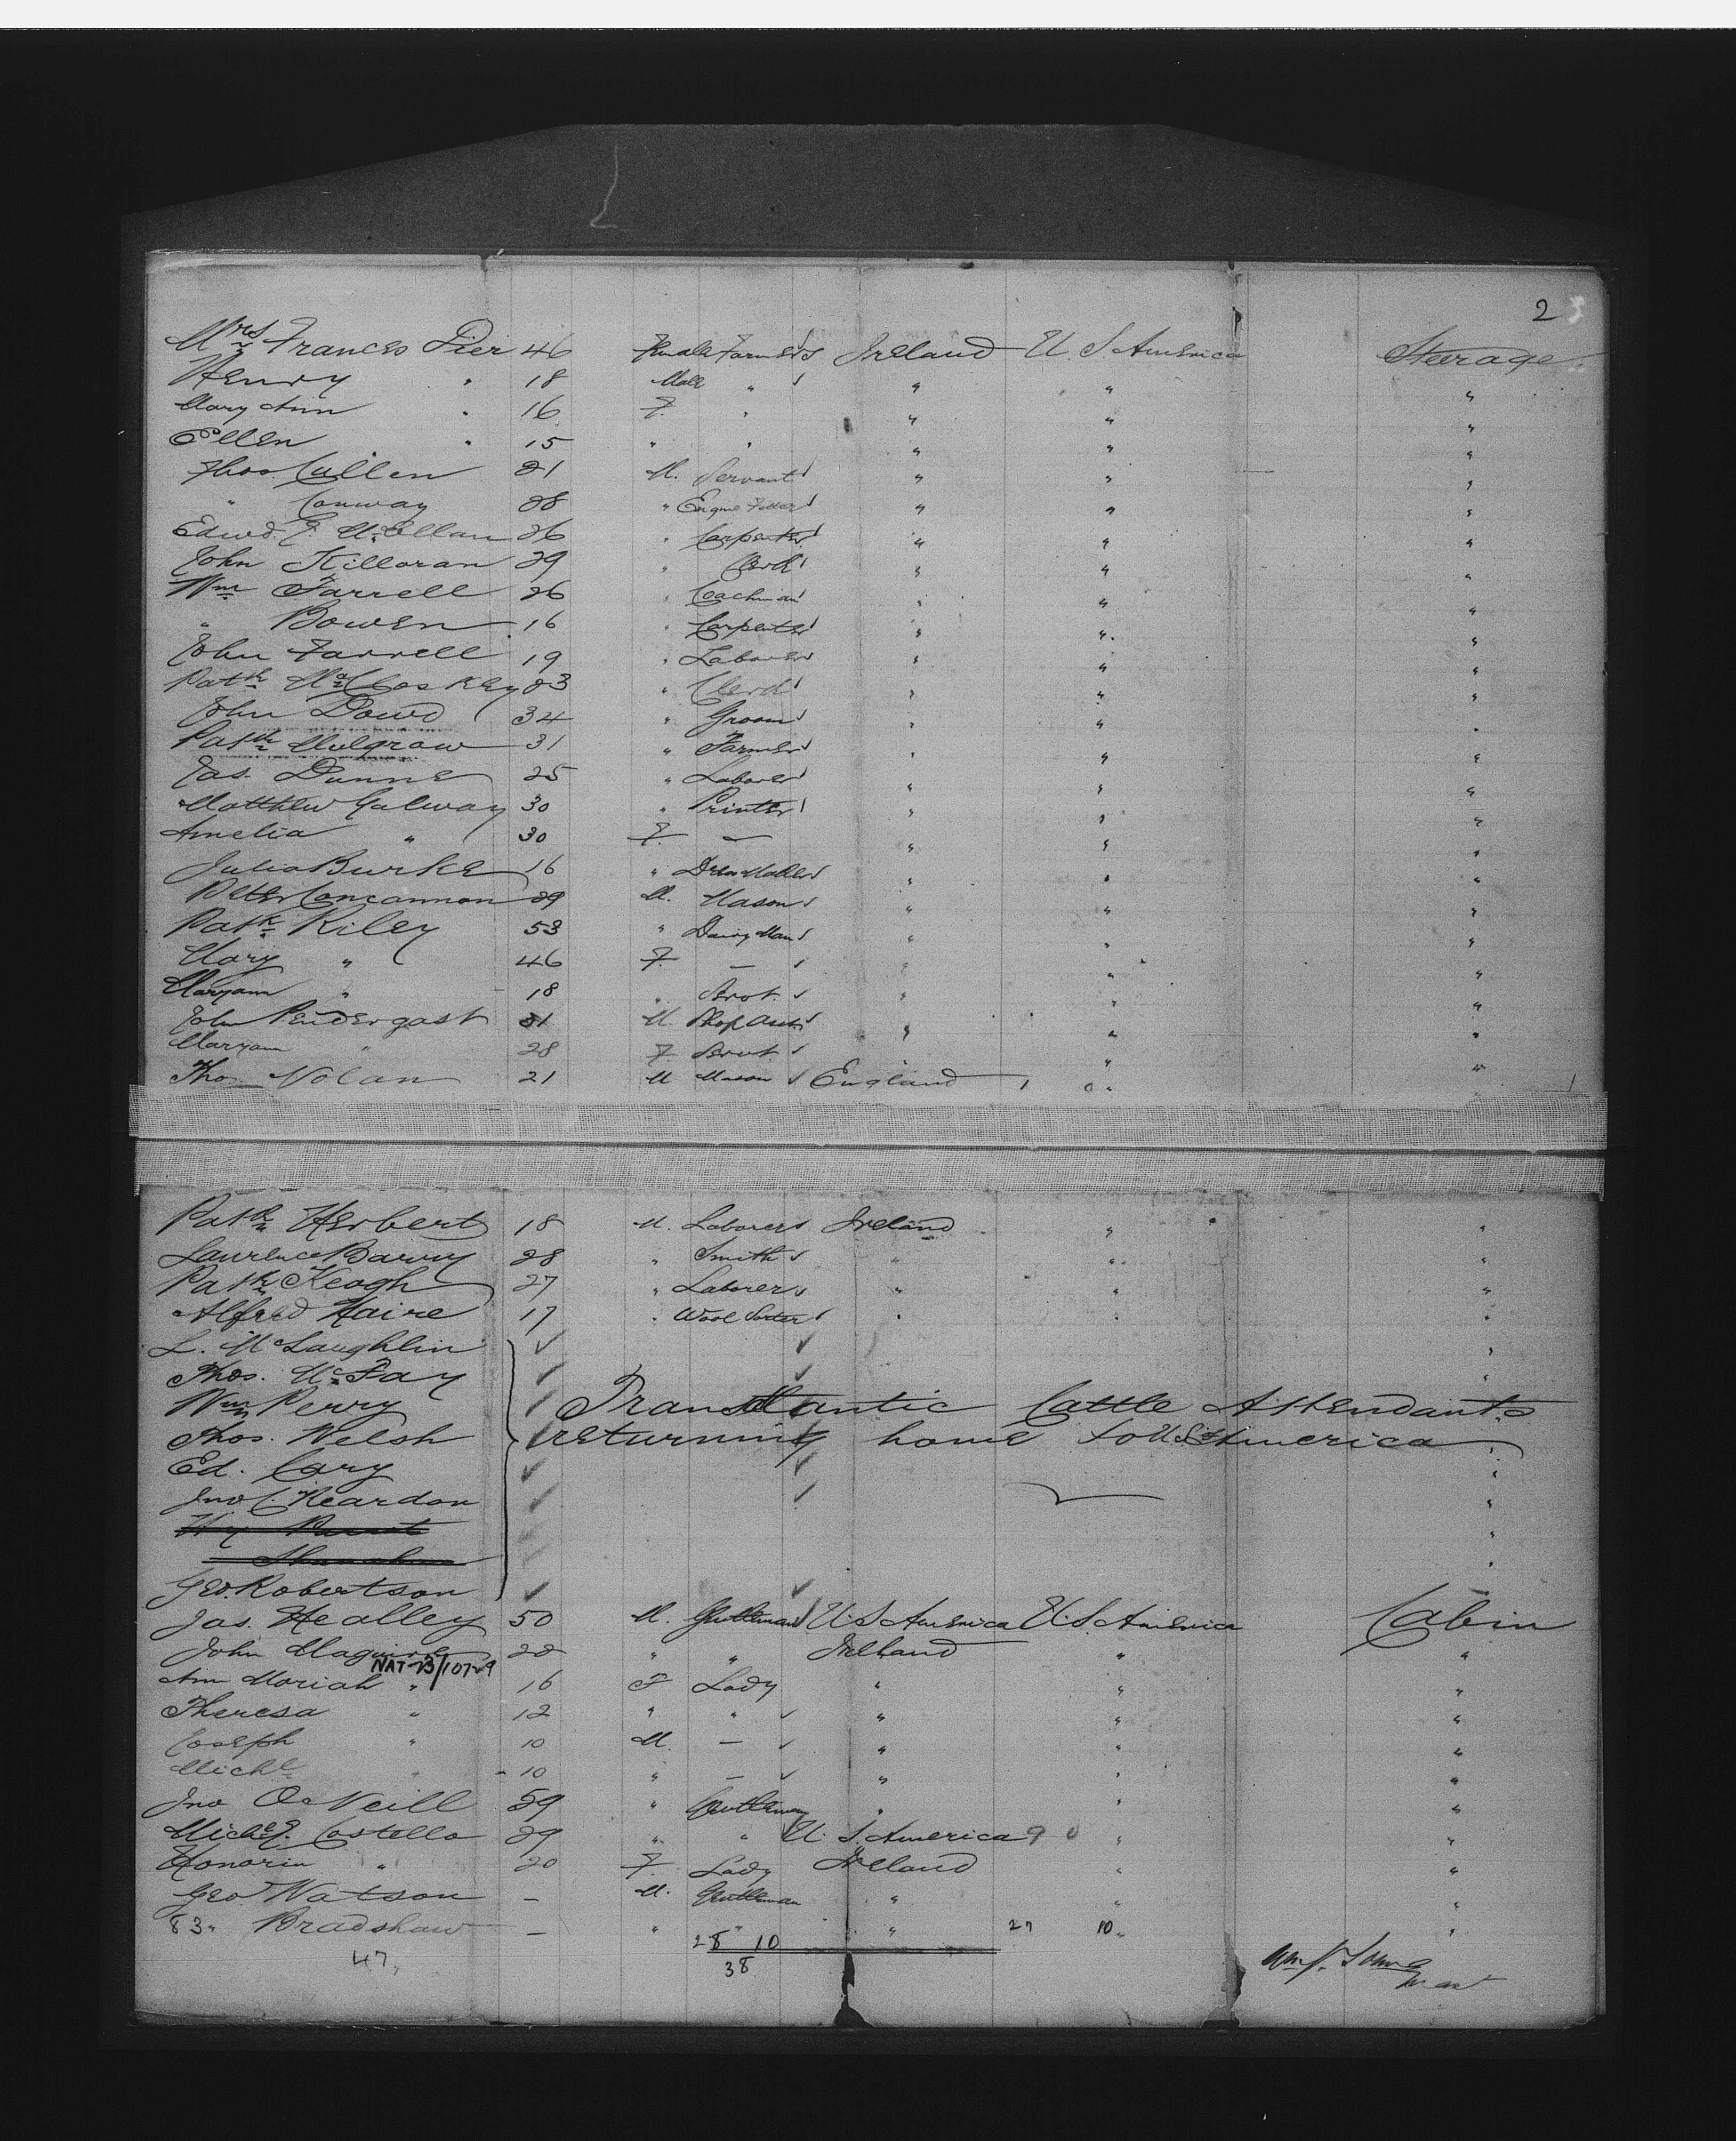 2
Mrs Frances Pier 46 Female Farmers Ireland U. S America Steerage
Henry " 18 Male " " " "
Mary Ann " 16 F. " " " "
Ellen " 15 " " " " "
Thos. Cullen 21 M. Servant " " "
" Conway 28 " Engine Fitter " " "
Edwd. J. McEllan 26 " Carpenter " " "
John Killoran 29 " Clerk " " "
Wm Farrell 26 " Coachman " " "
" Bowen 16 " Carpenter " " "
John Farrell 19 " Laborer " " "
Patk McCloskey 23 " Clerk " " "
John Dowd 34 " Groom " " "
Patk Mulgrow 31 " Farmer " " "
Jas. Dunne 25 " Laborer " " "
Matthew Galway 30 " Printer " " "
Amelia " 30 F. — " " "
Julia Burke 16 " Dress Maker " " "
Peter Concannon 29 M. Mason " " "
Patk Riley 53 " Dairy Man " " "
Mary " 46 F. — " " "
Maryann " 18 " Servt. " " "
John Pendergast 31 M. Shop Asst " " "
Maryann " 28 F. Servt. " "
Tho Nolan 21 M Mason England " "
Patk Herbert 18 M. Laborer Ireland " "
Laurence Barry 28 " Smith " " "
Patk Keogh 27 " Laborer " " "
Alfred Haire 17 " Wool Sorter " " "
L. McLaughlin "
Thos. McFay "
Wm Perry Transatlantic Cattle Attendants
Thos. Welsh returning home to U S America "
Ed. Cary "
Jno C. Reardon "
Hy "
Shanahan "
Geo. Robertson
Jas. Healley 50 M. Gentleman U. S America U. S. America Cabin
John Maguire 28 " " Ireland " "
NAT-23/10729
Ann Mariah " 16 F Lady " " "
Theresa " 12 " " " " "
Joseph " 10 M. — " " "
Michl " 10 " — " " "
Jno O'Neill 59 " Gentleman " " "
Michl J. Costello 29 " " U. S. America 9 0 " "
Honoria " 20 F. Lady Ireland " "
Geo Watson — M. Gentleman " " "
83 " Bradshaw — " " " 27 10 " "
28 10
47
38